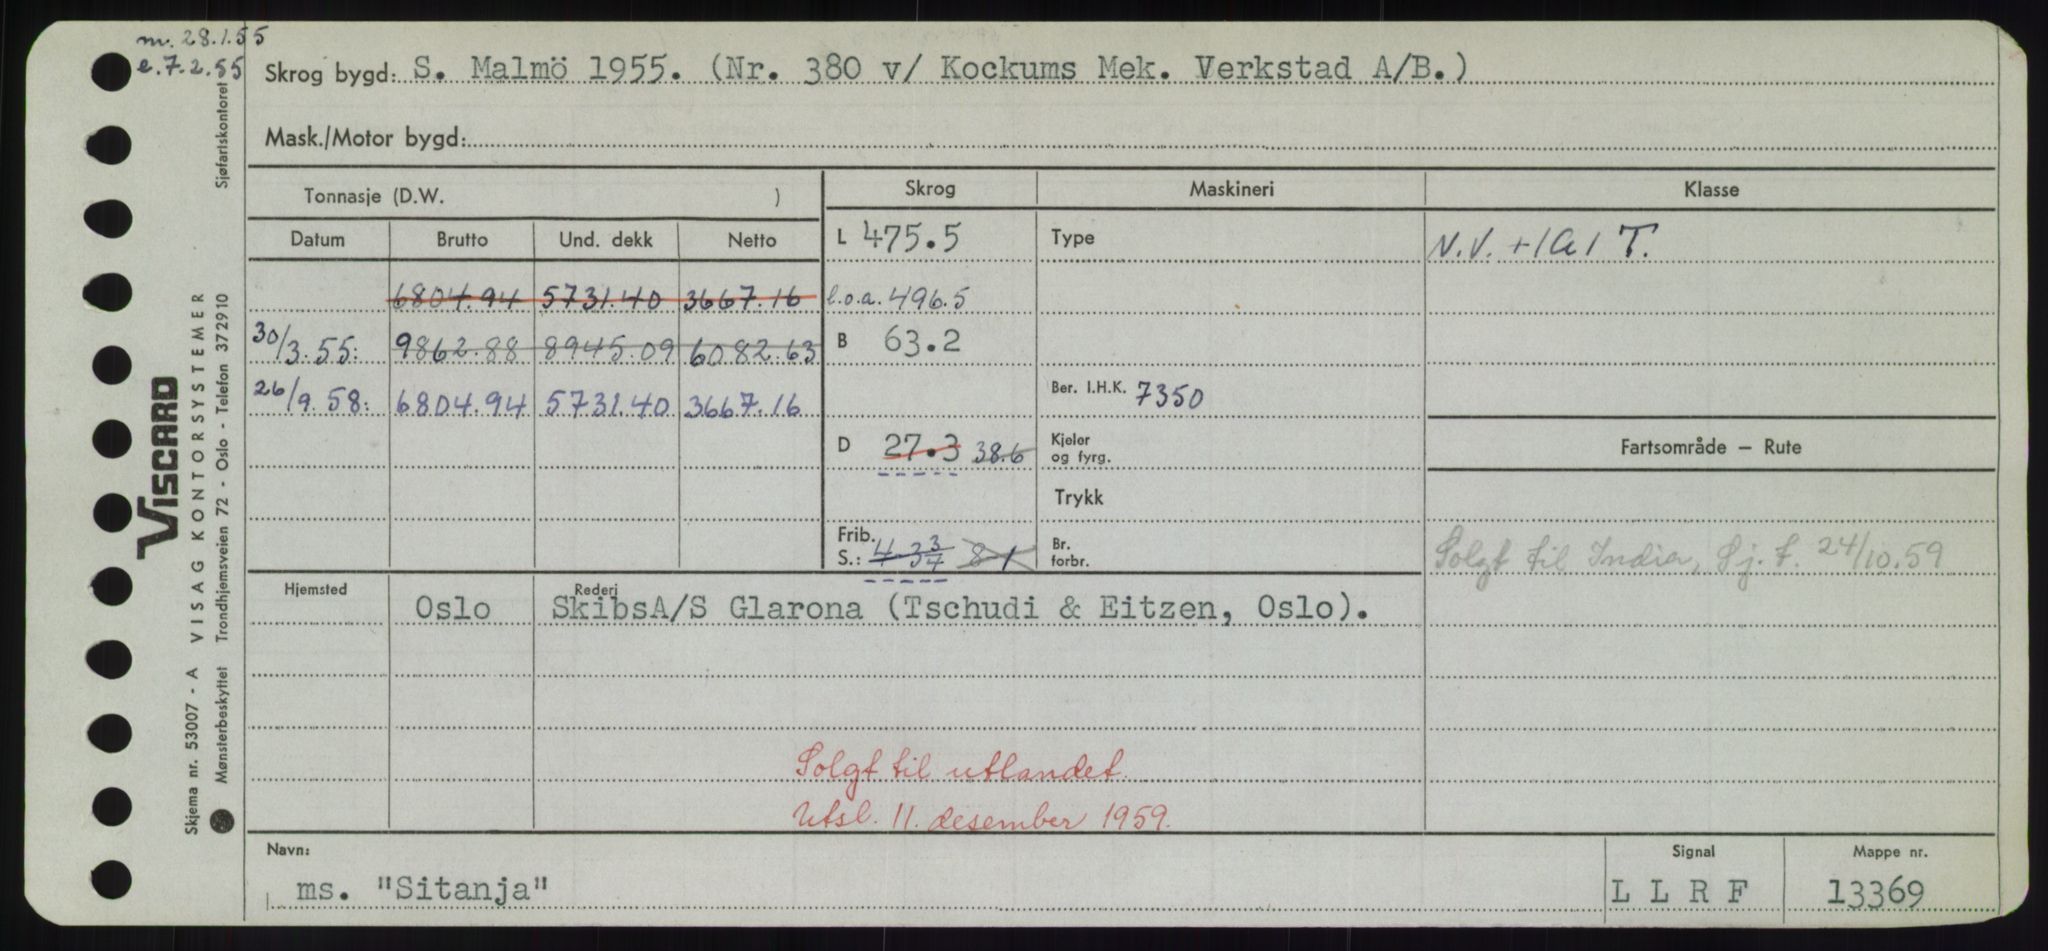 m. 28.1.55
e. 7.2.55
Skrog bygd: S. Malmö 1955. (Nr. 380 v/ Kockums Mek. Verkstad A/B.)
Mask./Motor bygd:
Tonnasje (D.W. )
Skrog Maskineri Klasse
Datum Brutto Und. dekk Netto
L 475.5 Type N.V. +1A1 T.
6804.94 5731.40 3667.16 l.o.a. 496.5
30/3.55: 9862.88 8945.09 6082.63 B 63.2
26/9.58: 6804.94 5731.40 3667.16 Ber. I.H.K. 7350
D 27.3 38.6 Kjeler og fyrg.
Fartsområde — Rute
Trykk
Frib. S.: 4-3 3/4 8-1 Br. forbr.
Solgt til India, Sj.f. 24/10.59
Hjemsted Rederi
Oslo SkibsA/S Glarona (Tschudi & Eitzen, Oslo).
Solgt til utlandet.
Utsl. 11. desember 1959.
Navn: Signal Mappe nr.
ms. "Sitanja" L L R F 13369
VISCARD
Skjema nr. 53007 - A VISAG KONTORSYSTEMER
Mønsterbeskyttet Trondhjemsveien 72 - Oslo - Telefon 372910 Sjøfartskontoret